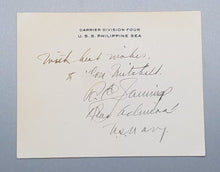 CARRIER DIVISION FOUR
U. S. S. PHILIPPINE SEA
With best wishes
to Mitchell.
Rear Admiral
US Navy